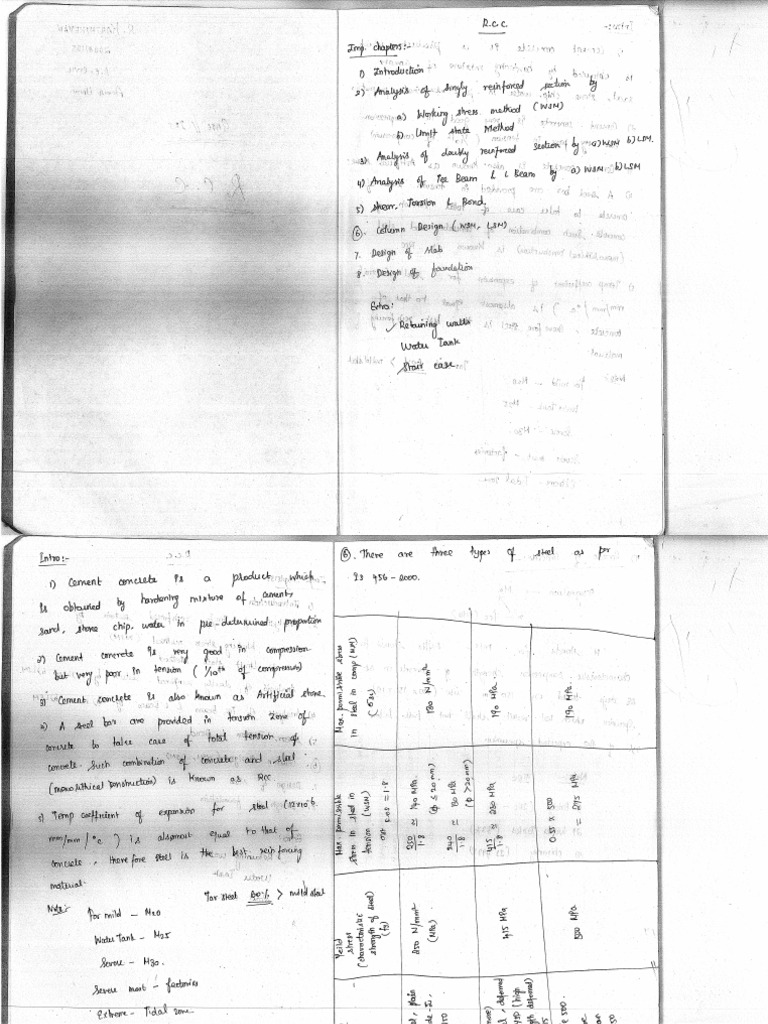 R.C.C.
Imp. chapters:-
1) Introduction
2) Analysis of singly reinforced section by
a) Working stress method (WSM)
b) Limit state Method
3) Analysis of doubly reinforced section by a) WSM b) LSM.
4) Analysis of Tee Beam & L Beam by a) WSM b) LSM
5) Shear, Torsion & Bond.
6. Column Design (WSM, LSM)
7. Design of slab
8. Design of foundation
Extra:
Retaining walls
Water Tank
Stair case
Intro:-
1) Cement concrete is a product which
is obtained by hardening mixture of cement,
sand, stone chip, water in pre-determined proportion
2) Cement concrete is very good in compression
but very poor in tension (1/10th of compression)
3) Cement concrete is also known as Artificial stone.
4) A steel bar are provided in tension zone of
concrete to take care of total tension of
concrete. Such combination of concrete and steel
(monolithical construction) is known as RCC
5) Temp coefficient of expansion for steel (12×10-6
mm/mm/°c) is alsomost equal to that of
concrete, therefore steel is the best reinforcing
material.
Tor steel > mild steel
Note:- For mild - M20
Water Tank - M25
Severe - M30.
Severe most - factories
Extreme - Tidal zone
6. There are three types of steel as pr
IS 456-2000.
Max. permissible stress
in steel in comp (WSM)
(σsc)
130 N/mm²
190 MPa.
190 MPa.
Max permissible
stress in steel in
tension (WSM)
F.O.S = 1.8
250/1.8 ≈ 140 MPa.
(φ ≤ 20 mm)
240/1.8 ≈ 130 MPa
(φ > 20 mm)
415/1.8 ≈ 230 MPa.
0.55 × 500
= 275 MPa.
Yeild
stress
(characteristic
strength of steel)
(fy)
250 N/mm²
(MPa)
415 MPa
500 MPa.